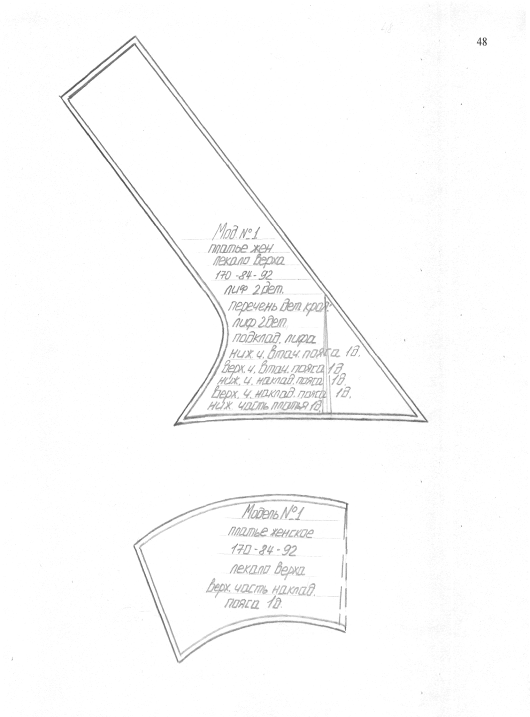 48
Мод №1
платье жен
лекало верха
170-84-92
лиф 2дет.
перечень дет. кроя:
лиф 2дет.
подклад. лифа
ниж. ч. втач. пояса 1д.
верх. ч. втач. пояса 1д
ниж. ч. наклад. пояса 1д
верх. ч. наклад. пояса 1д.
ниж. часть платья 1д.
Модель №1
платье женское
170-84-92
лекало верха
верх. часть наклад.
пояса 1д.